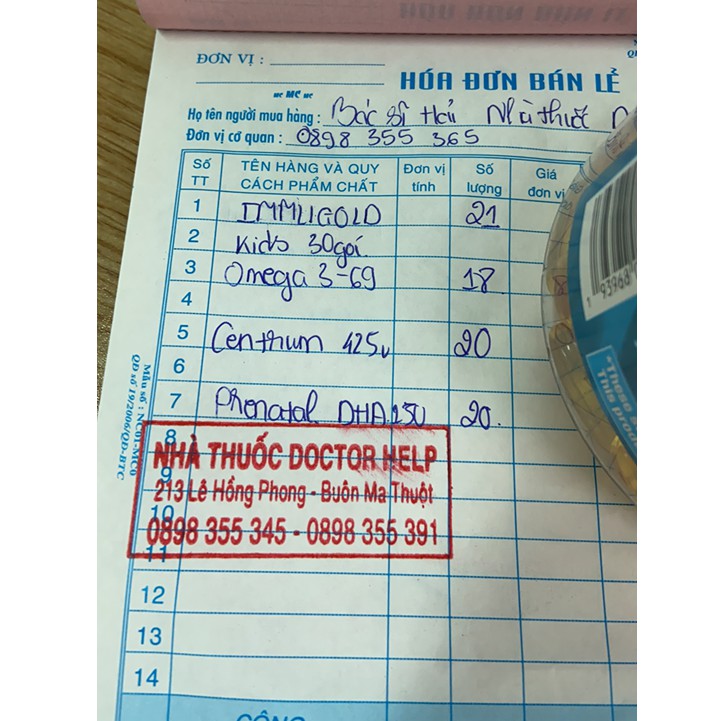 ĐƠN VỊ :
HÓA ĐƠN BÁN LẺ
MC
Họ tên người mua hàng : Bác sĩ Hải Nhà thuốc
Đơn vị cơ quan : 0898 355 365
Số TT
TÊN HÀNG VÀ QUY CÁCH PHẨM CHẤT
Đơn vị tính
Số lượng
Giá đơn vị
1 IMMUGOLD 21
2 Kids 30gói
3 Omega 3-69 18
4
5 Centrum 425v 20
6
7 Phenatal DHA 150 20
8
NHÀ THUỐC DOCTOR HELP
9
213 Lê Hồng Phong - Buôn Ma Thuột
10
0898 355 345 - 0898 355 391
11
12
13
14
CỘNG
Mẫu số : NC01-MC6
QĐ số 19/2006/QĐ-BTC
"These
This produ
1 93968